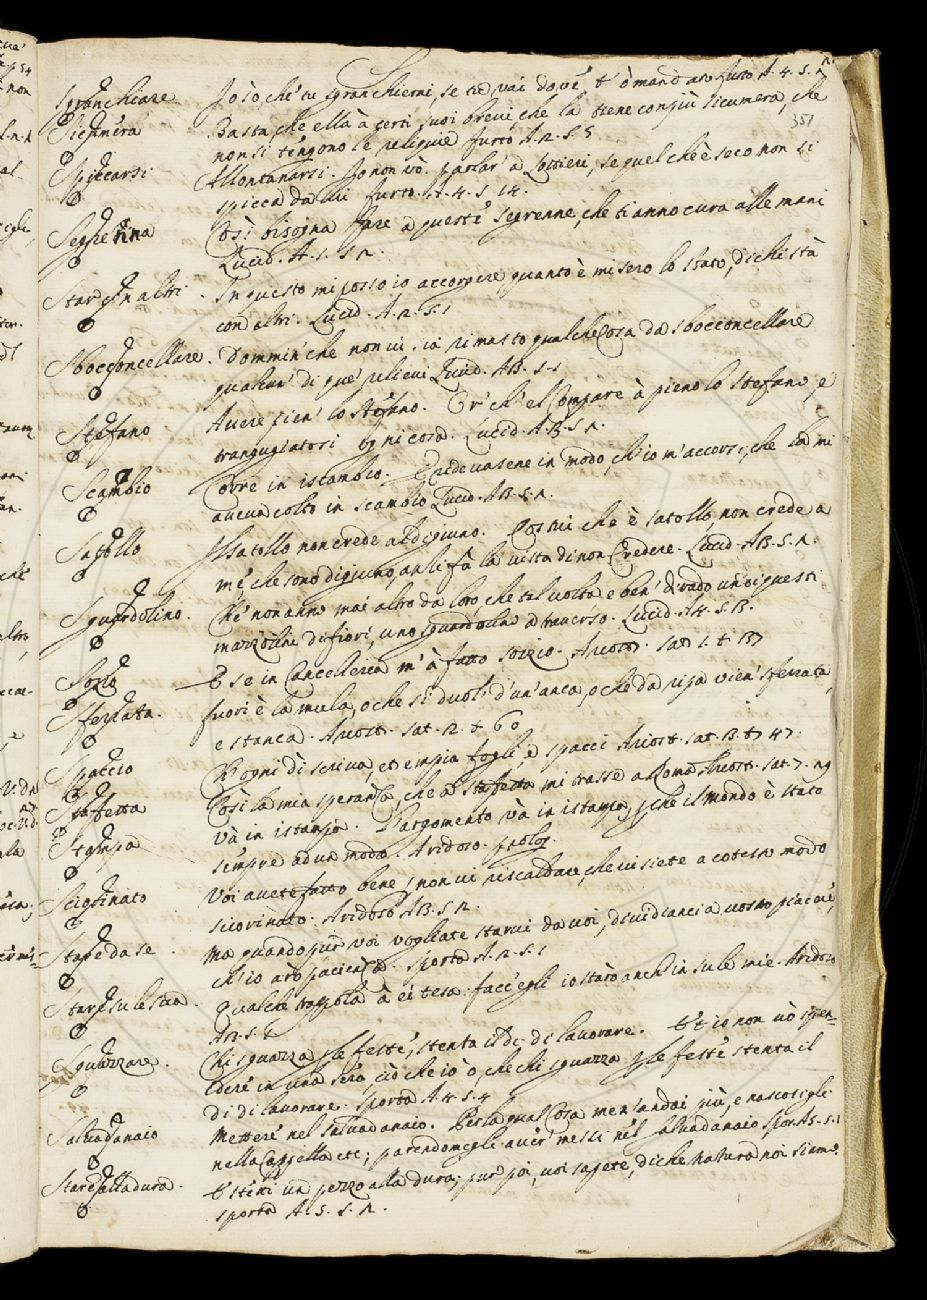 351
Sgranchiare. Io sò, che tu sgranchierai, se tu vai dov'è, t' ò mandato furto A. 4. S. n
Sicumera Basta che ella à certi suoi brevi che la tiene con più sicumera, che
non si tengono le reliquie furto A. 2. S. 5
Spiccarsi Allontanarsi. Io non vò parlar' a Lottieri, se quel che è seco non si
spicca da lui furto. A. 4. S. 14.
Segrenna Così bisogna fare a queste segrenne, che ti anno cura alle mani
Lucid. A. 1. S. n.
Star con altri. In questo mi posso io accorgere quanto è misero lo stato, di chi stà
con altri. Lucid. A. 2. S. 1
Sbocconcellare. Dommin' che non vi sia rimasto qualche cosa da sbocconcellare
qualcun' di que' rilievi Lucid. A 3. S. 1
Stefano Avere pien' lo Stefano. Or' ch' el compare à pieno lo Stefano, e
trangugiatosi ogni cosa. Lucid. A. 3. S. n.
Scambio Corre in iscambio. Ridevasene in modo, ch'io m'accorsi, che la mi
aveva colto in scambio Lucid. A 3. S. n.
Satollo Il satollo non crede al digiuno. Costui che è satollo non crede a
me, che sono digiuno, anzi fà la vista di non credere. Lucid. A 3. S. n.
Sguardolino. Chè non anno mai altro da loro, che tal volta e ben' di rado un di questi
mazzolini di fiori, uno sguardolino a traverso. Lucid. A 4. S. 3.
Sozio E se in Cancelleria m' à fatto sozio. Ariost. sat. 1. t 37
Sferrata. fuori è la mula, o che si duol d'un'anca, o che da ripa vien' sferrata,
e stanca. Ariost. sat. 2. t 60
Spaccio Ch' ogni dì scriva, et empia fogli, e spacci Ariost. sat. 3. t 47.
Staffetta Così la mia speranza, che a staffetta mi trasse a Roma Ariost. sat. 7. ng
Stampa Và in istampa. L'argomento và in istampa, perche il mondo è stato
sempre ad un modo. Aridoso. prolog.
Sciorinato Voi avete fatto bene, non vi riscaldare, che vi siete a cotesto modo
sciorinato. Aridoso A 3. S. n.
Stare da se. Ma quando pur voi vogliate starvi da voi, dividianci a vostro piacere,
ch'io arò pacienza. sporta A. 2. S. 1
Stare su le sua. Qualche trappola à ei tesa. facc' egli io starò anch' in su le mie. Aridoso
A 3. S. 6
Sguazzare. Chi sguazza per le feste, stenta il dì di lavorare. Et io non vò spen=
dere in una sera, ciò che io ò, che chi sguazza per le feste stenta il
dì di lavorare. sporta A. 4. S. 4
Salvadanaio Mettere nel salvadanaio. Per la qual cosa me n'andai più, e nascosigli
nella Cappella etc; parendomegli aver' messi nel salvadanaio Spor. A 5. S. 1
Stare alla dura. E stetti un pezzo alla dura; pur poi, voi sapete, di che natura noi siamo.
sporta A. 5. S. n.